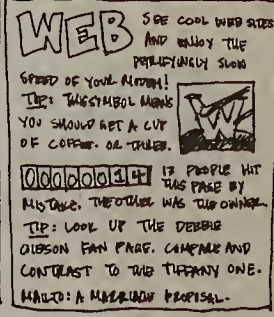 WEB SEE COOL WEB SITES
AND ENJOY THE
PETRIFYINGLY SLOW
SPEED OF YOUR MODEM!
TIP: THIS SYMBOL MEANS
YOU SHOULD GET A CUP
OF COFFEE. OR THREE.
W
00000014 13 PEOPLE HIT
THIS PAGE BY
MISTAKE. THE OTHER WAS THE OWNER.
TIP: LOOK UP THE DEBBIE
GIBSON FAN PAGE. COMPARE AND
CONTRAST TO THE TIFFANY ONE.
MAILTO: A MARRIAGE PROPOSAL.